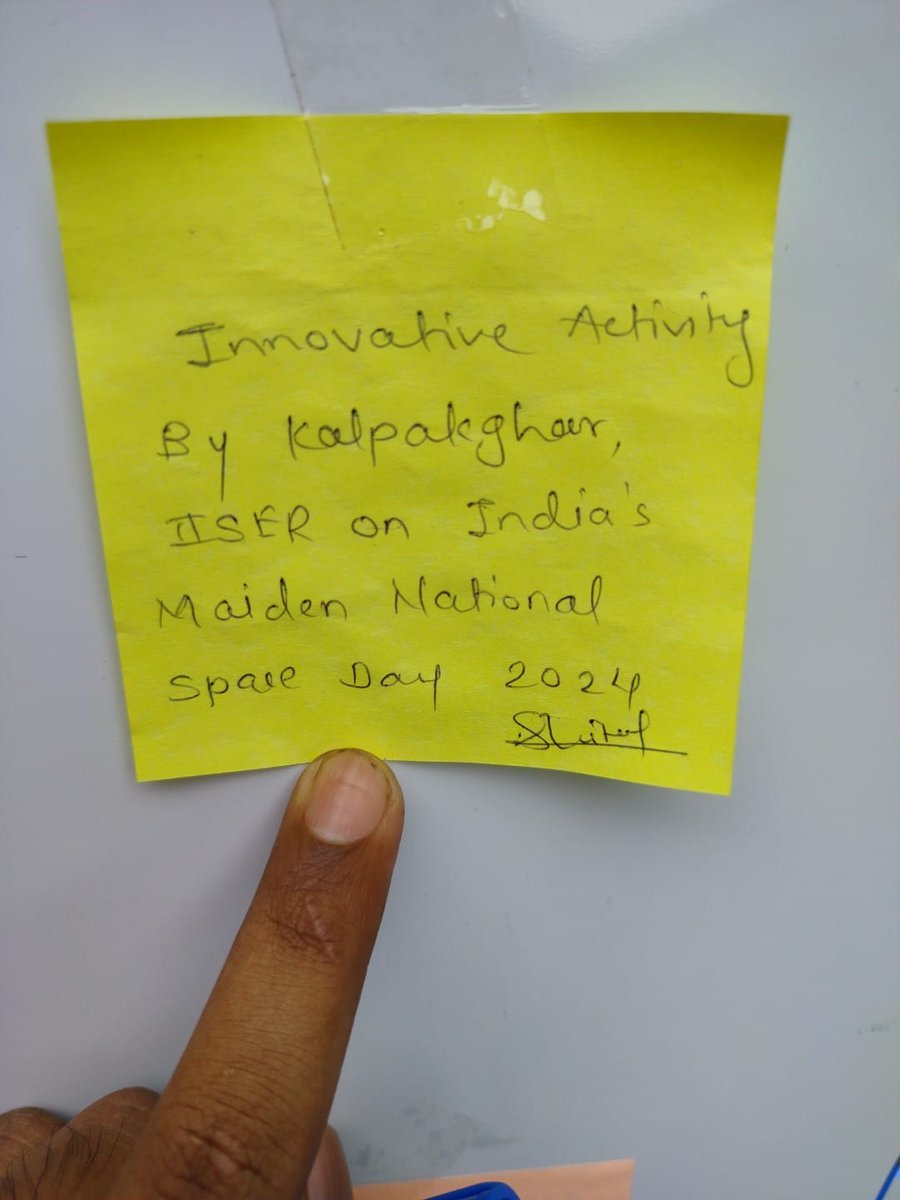 Innovative Activity
By Kalpakghar,
IISER on India's
Maiden National
Space Day 2024